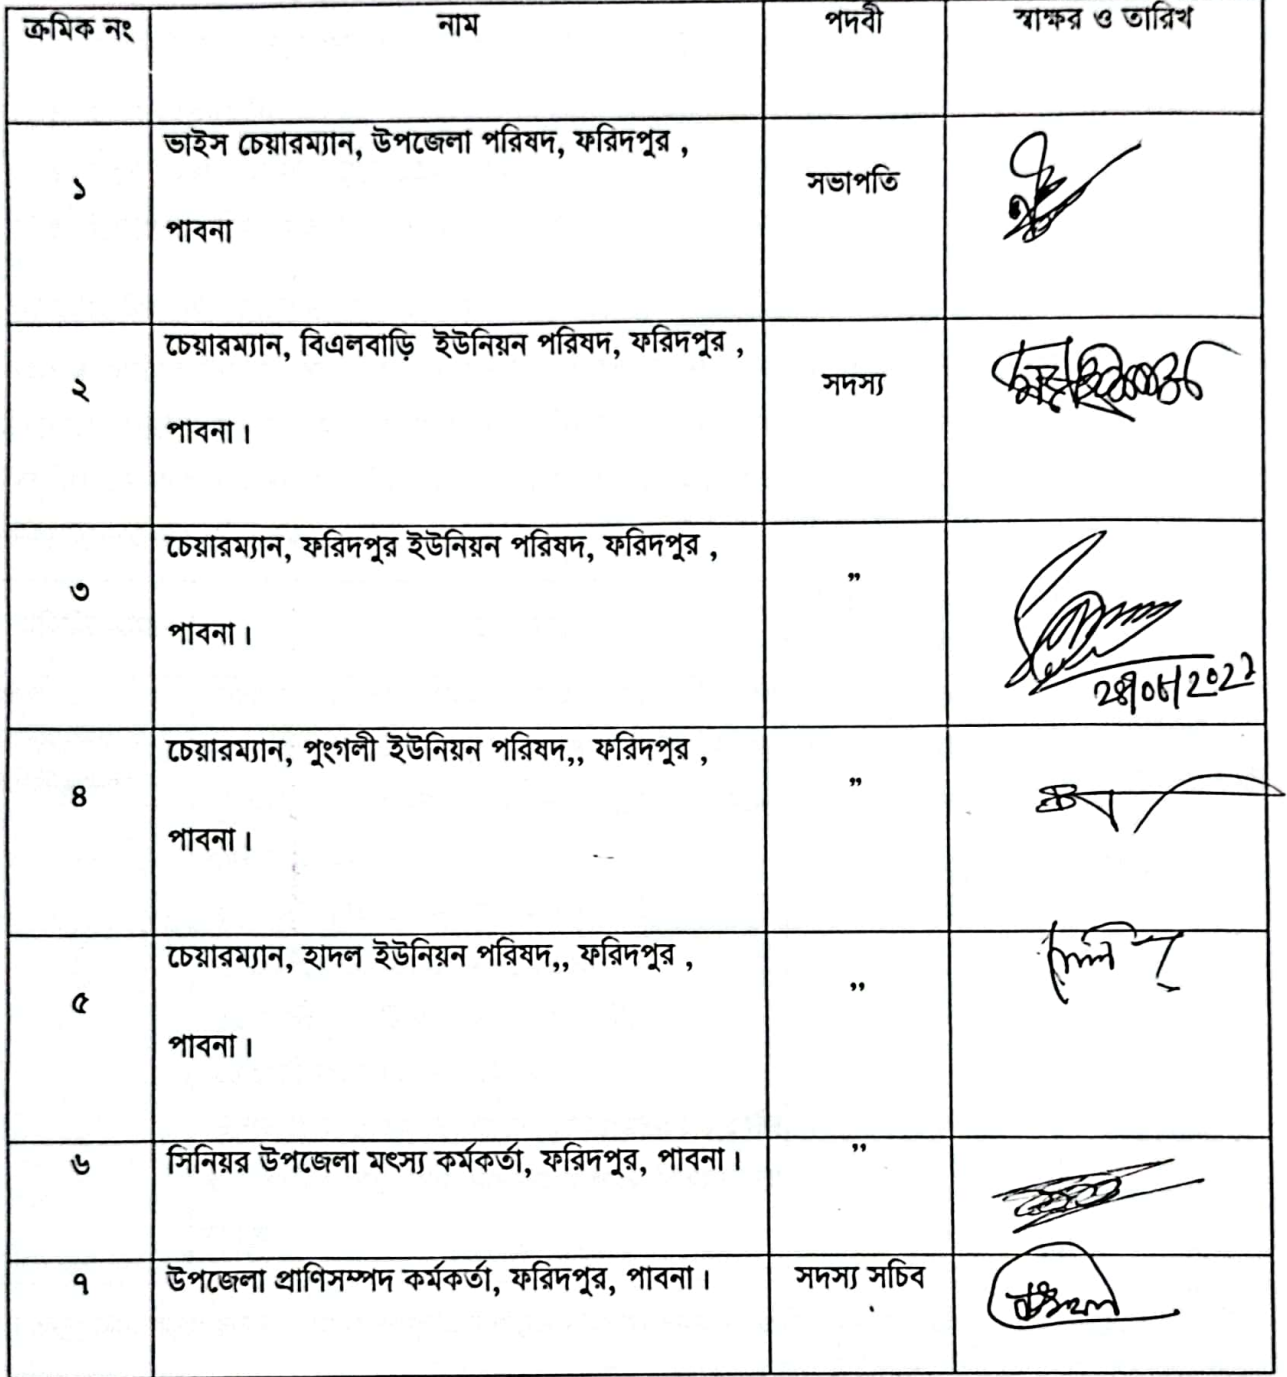 ক্রমিক নং নাম পদবী স্বাক্ষর ও তারিখ
ভাইস চেয়ারম্যান, উপজেলা পরিষদ, ফরিদপুর ,
১ সভাপতি
পাবনা
চেয়ারম্যান, বিএলবাড়ি ইউনিয়ন পরিষদ, ফরিদপুর ,
২ সদস্য
পাবনা।
চেয়ারম্যান, ফরিদপুর ইউনিয়ন পরিষদ, ফরিদপুর ,
৩ ”
পাবনা।
চেয়ারম্যান, পুংগলী ইউনিয়ন পরিষদ,, ফরিদপুর ,
৪ ”
পাবনা।
চেয়ারম্যান, হাদল ইউনিয়ন পরিষদ,, ফরিদপুর ,
৫ ”
পাবনা।
৬ সিনিয়র উপজেলা মৎস্য কর্মকর্তা, ফরিদপুর, পাবনা। ”
৭ উপজেলা প্রাণিসম্পদ কর্মকর্তা, ফরিদপুর, পাবনা। সদস্য সচিব